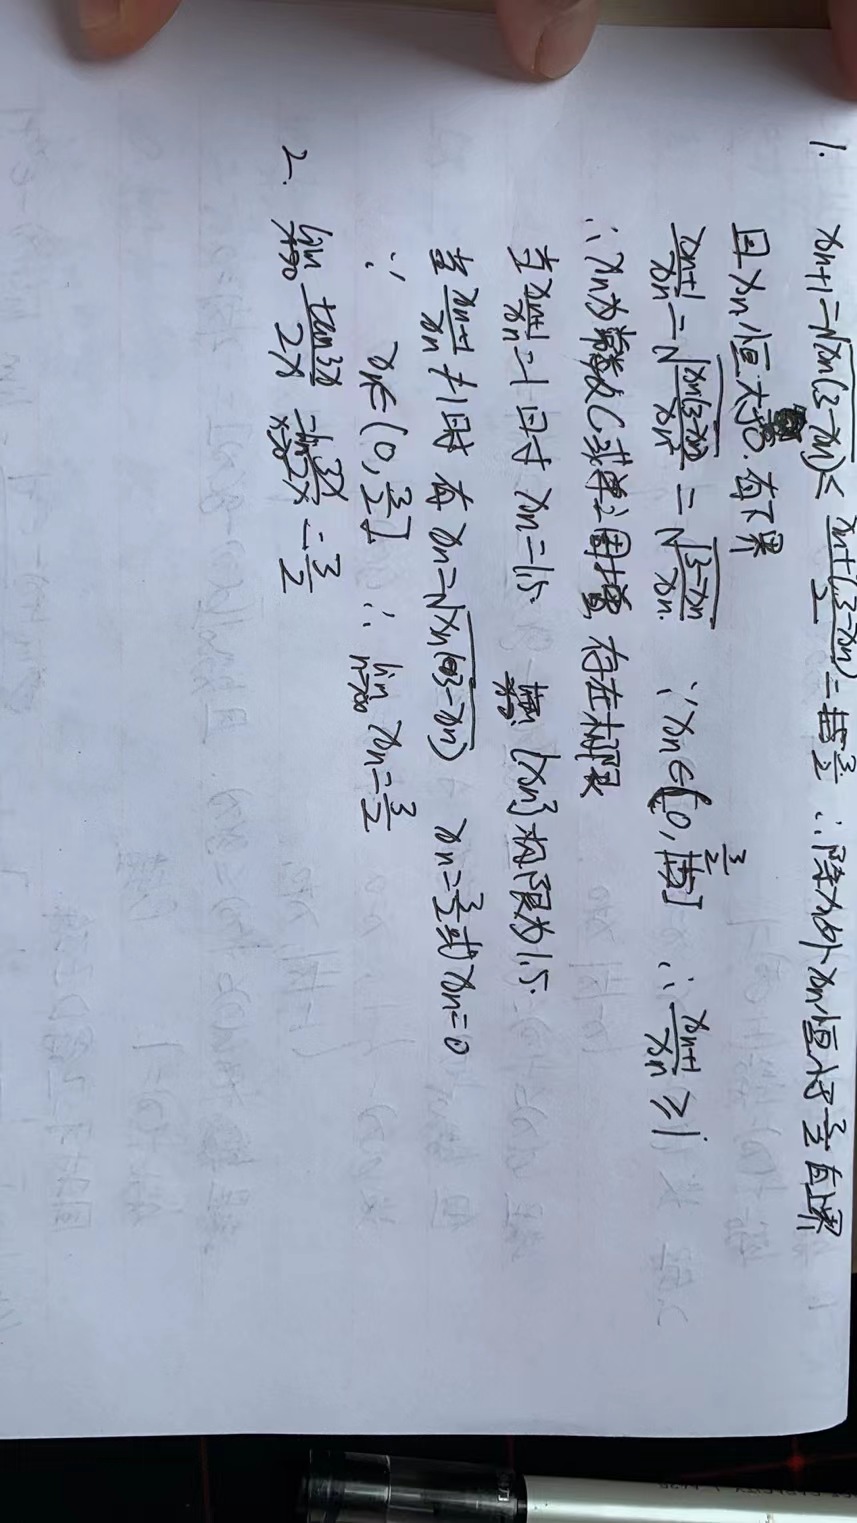 1. xn+1=√xn(3-xn) ≤ xn+(3-xn)/2 = 3/2 ∴除x1外xn恒小于3/2 有上界
且xn恒大于0.有下界
xn+1/xn=√xn(3-xn)/xn² = √3-xn/xn. ∵xn∈(0, 3/2] ∴ xn+1/xn ≥1
∴xn为常数C或单调增, 存在极限
当xn+1/xn=1时 xn=1.5. {xn}极限为1.5.
当xn+1/xn≠1时 有xn=√xn(3-xn) xn=3/2或xn=0
∵ xn∈(0,3/2] ∴ lim n→∞ xn=3/2
2. lim x→0 tan3x/2x = lim x→0 3x/2x = 3/2